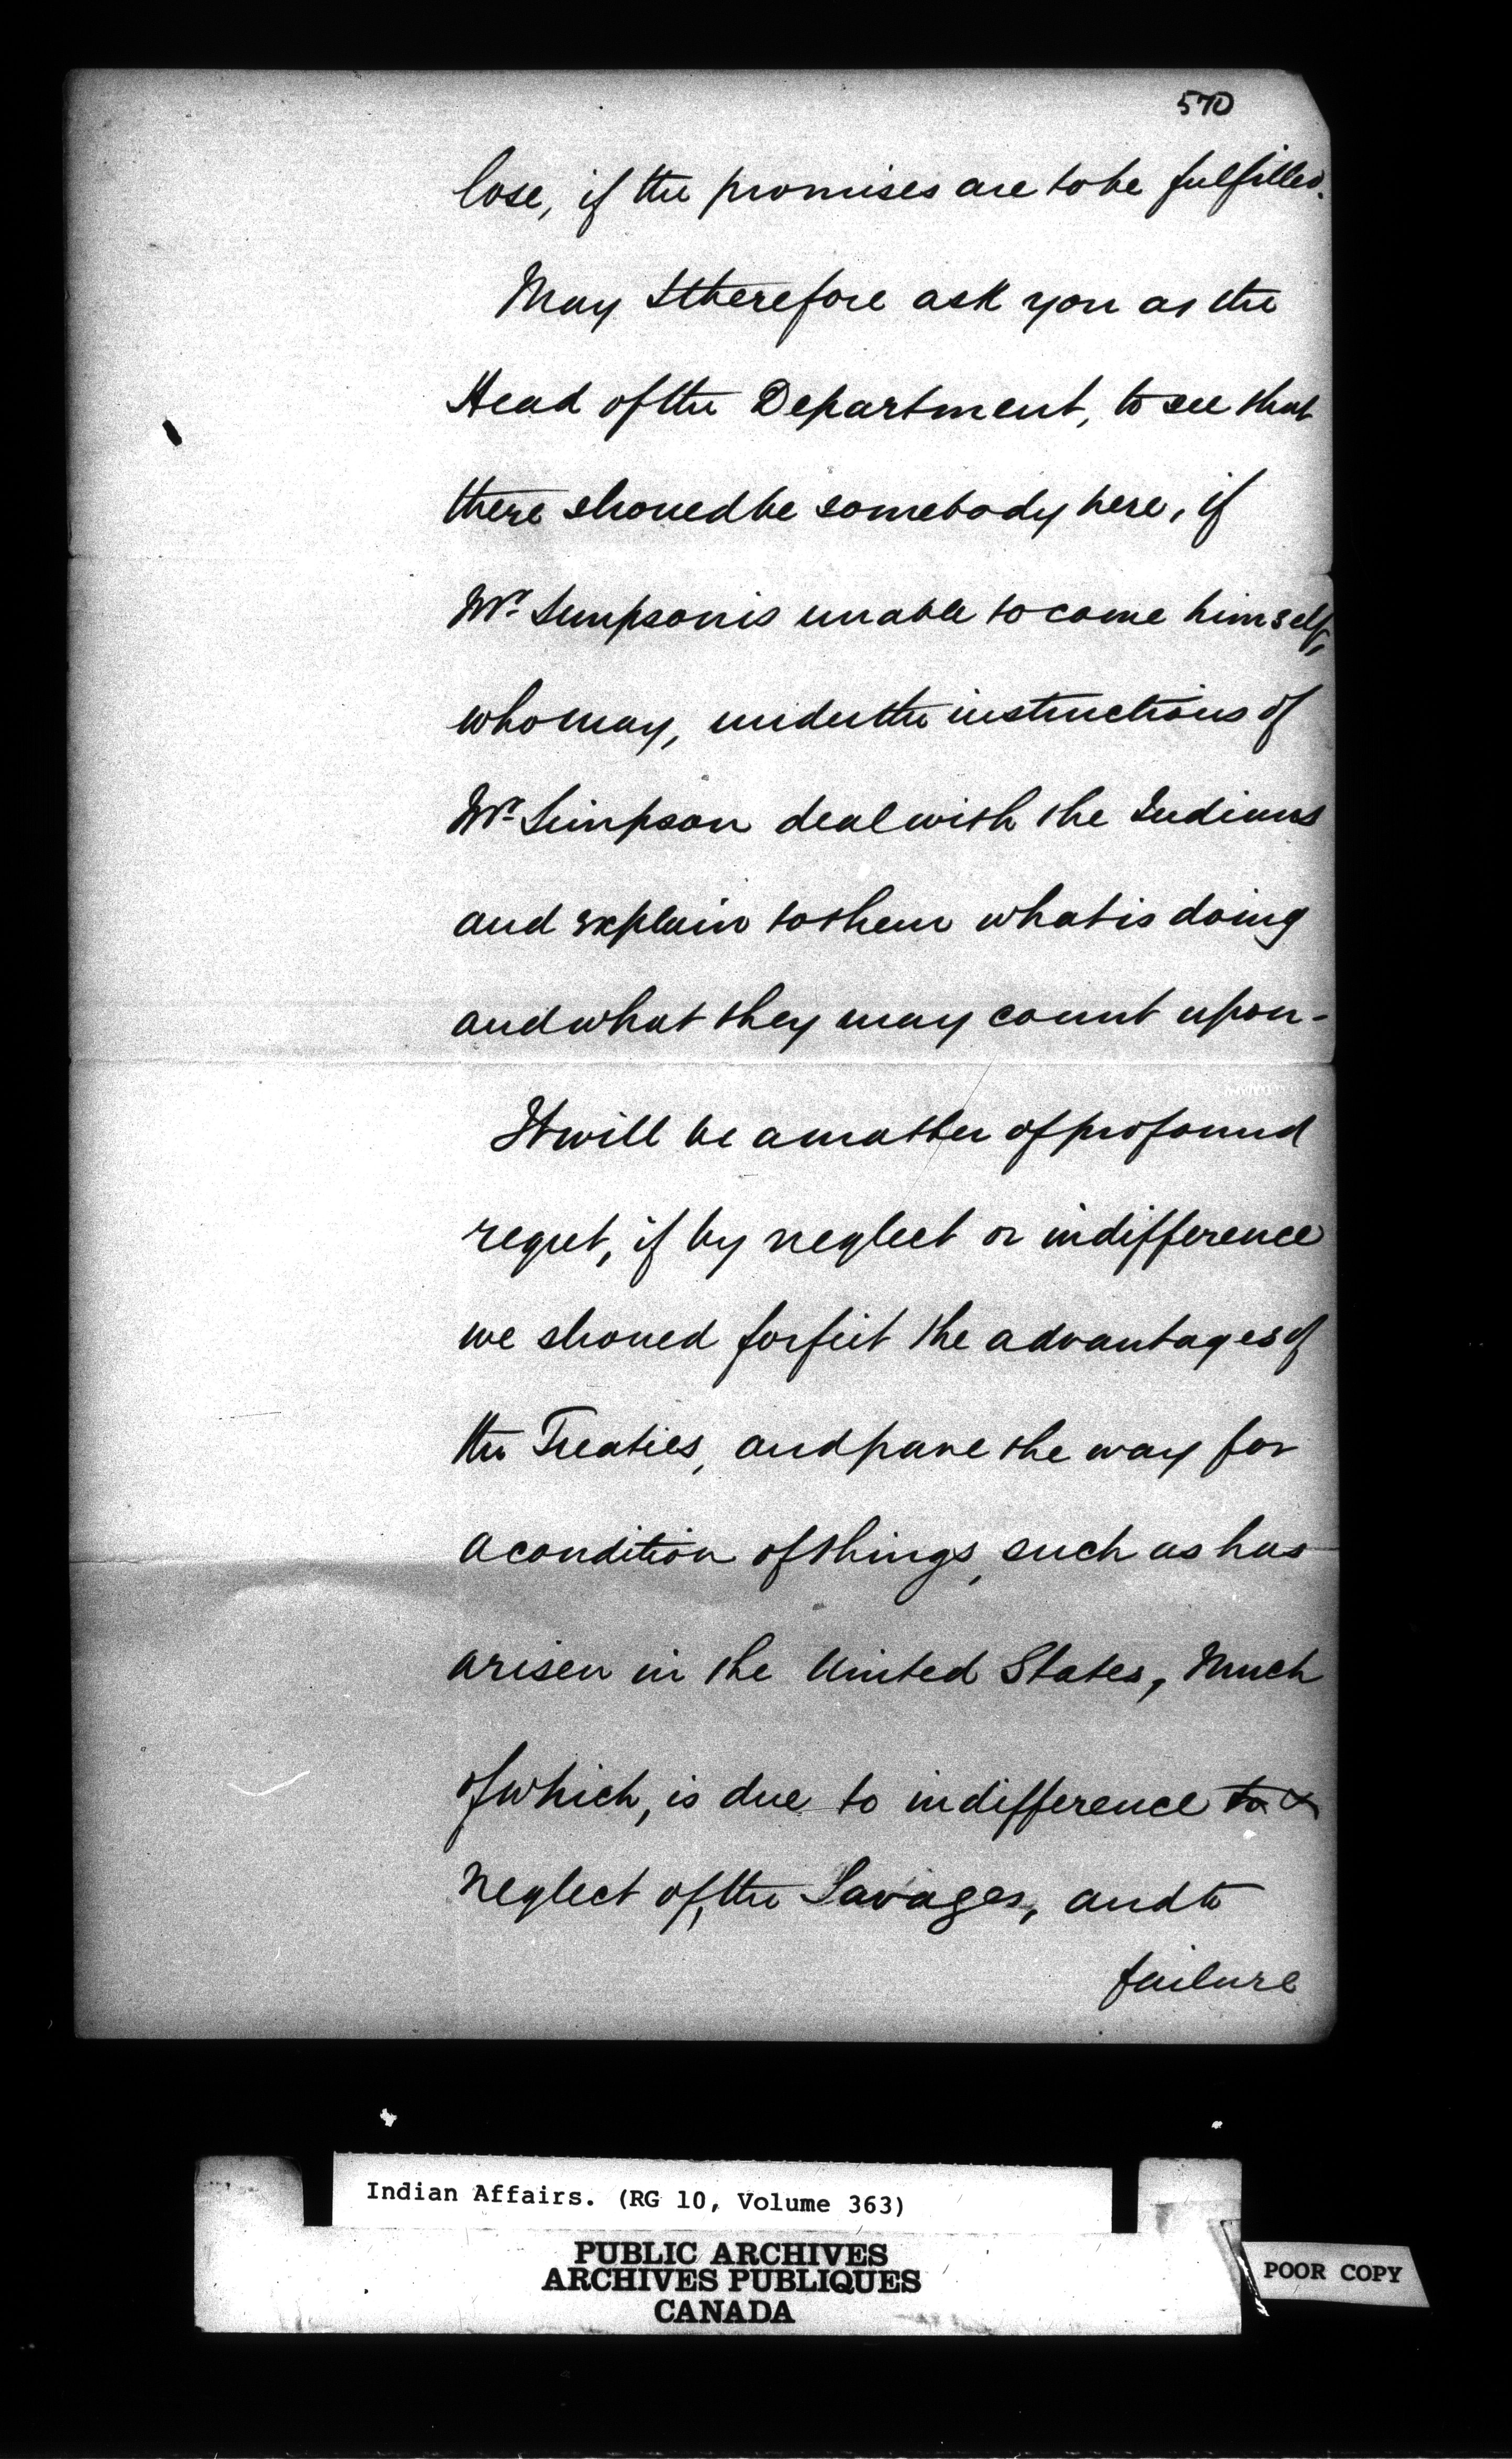 570
lose, if the promises are to be fulfilled.
May I therefore ask you as the
Head of the Department, to see that
there should be somebody here, if
Mr. Simpson is unable to come himself,
who may, under the instructions of
Mr. Simpson deal with the Indians
and explain to them what is doing
and what they may count upon-
It will be a matter of profound
regret, if by neglect or indifference
we should forfeit the advantages of
the Treaties, and pave the way for
a condition of things, such as has
arisen in the United States, Much
of which, is due to indifference to &
neglect of, the Savages, and to
failure
Indian Affairs. (RG 10, Volume 363)
PUBLIC ARCHIVES
ARCHIVES PUBLIQUES
CANADA
POOR COPY